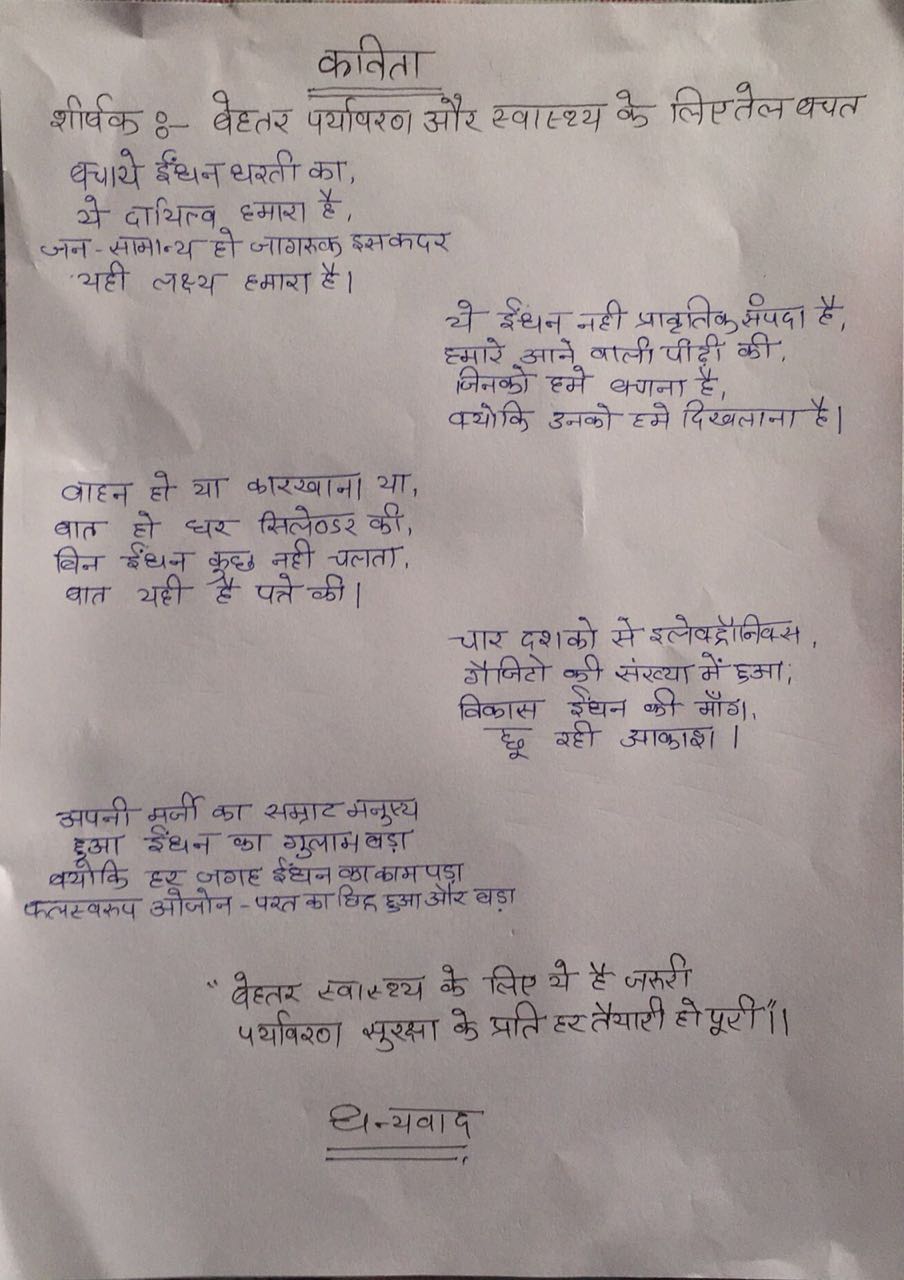 कविता
शीर्षक :- बेहतर पर्यावरण और स्वास्थ्य के लिए तेल बचत
बचाये ईंधन धरती का,
ये दायित्व हमारा है,
जन-सामान्य हो जागरुक इसकदर
यही लक्ष्य हमारा है।
ये ईंधन नही प्राकृतिक संपदा है,
हमारे आने वाली पीढ़ी की,
जिनको हमे बचाना है,
क्योकि उनको हमे दिखलाना है।
वाहन हो या कारखाना या,
बात हो घर सिलेण्डर की,
बिन ईंधन कुछ नही चलता,
बात यही है पते की।
चार दशको से इलेक्ट्रॉनिक्स,
गैजिटो की संख्या में हुआ,
विकास ईंधन की माँग,
छू रही आकाश।
अपनी मर्जी का सम्राट मनुष्य
हुआ ईंधन का गुलाम बड़ा
क्योकि हर जगह ईंधन का काम पड़ा
फलस्वरुप ओजोन-परत का छिद्र हुआ और बड़ा
"बेहतर स्वास्थ्य के लिए ये है जरुरी
पर्यावरण सुरक्षा के प्रति हर तैयारी हो पूरी"।।
धन्यवाद